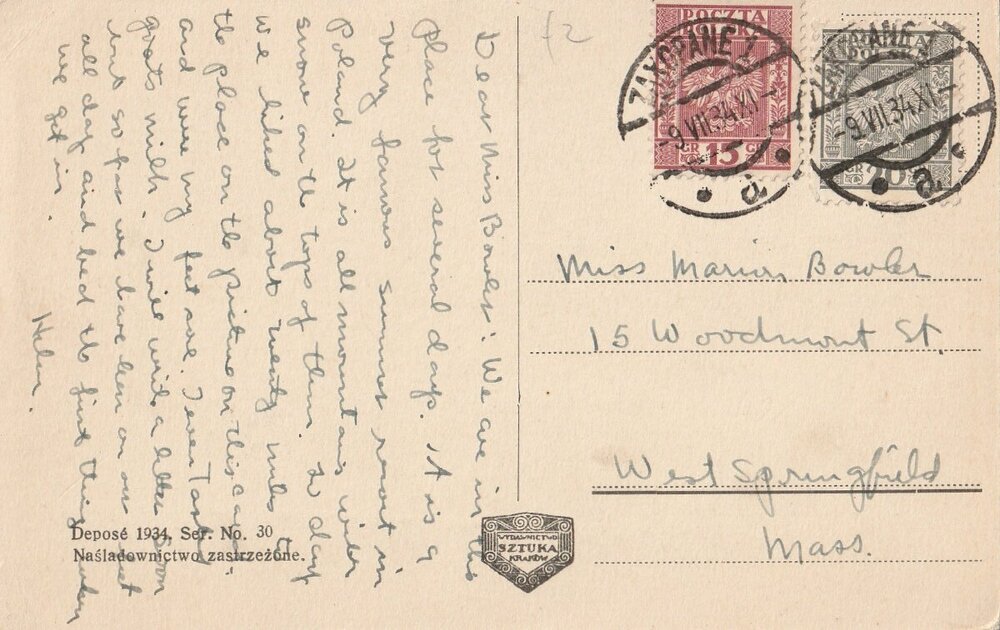 Dear Miss Bowler: We are in this
place for several days. It is a
very famous summer resort in
Poland. It is all mountains with
snow on the tops of them. To day
we hiked about twenty miles to
the place on the picture on this card
and were my feet sore. I even
goats milk. I will write a letter soon
but so far we have been on our
all day and bed the first thing when
we get in.
Helen.
f2
POCZTA
15 GR
GR 20
ZAKOPANE 1
-9.VII.34.XI-
a
ZAKOPANE 1
-9.VII.34.XI-
a
Miss Marion Bowler
15 Woodmont St.
West Springfield
Mass.
Deposé 1934. Ser. No. 30
Naśladownictwo zastrzeżone.
WYDAWNICTWO
SZTUKA
KRAKÓW